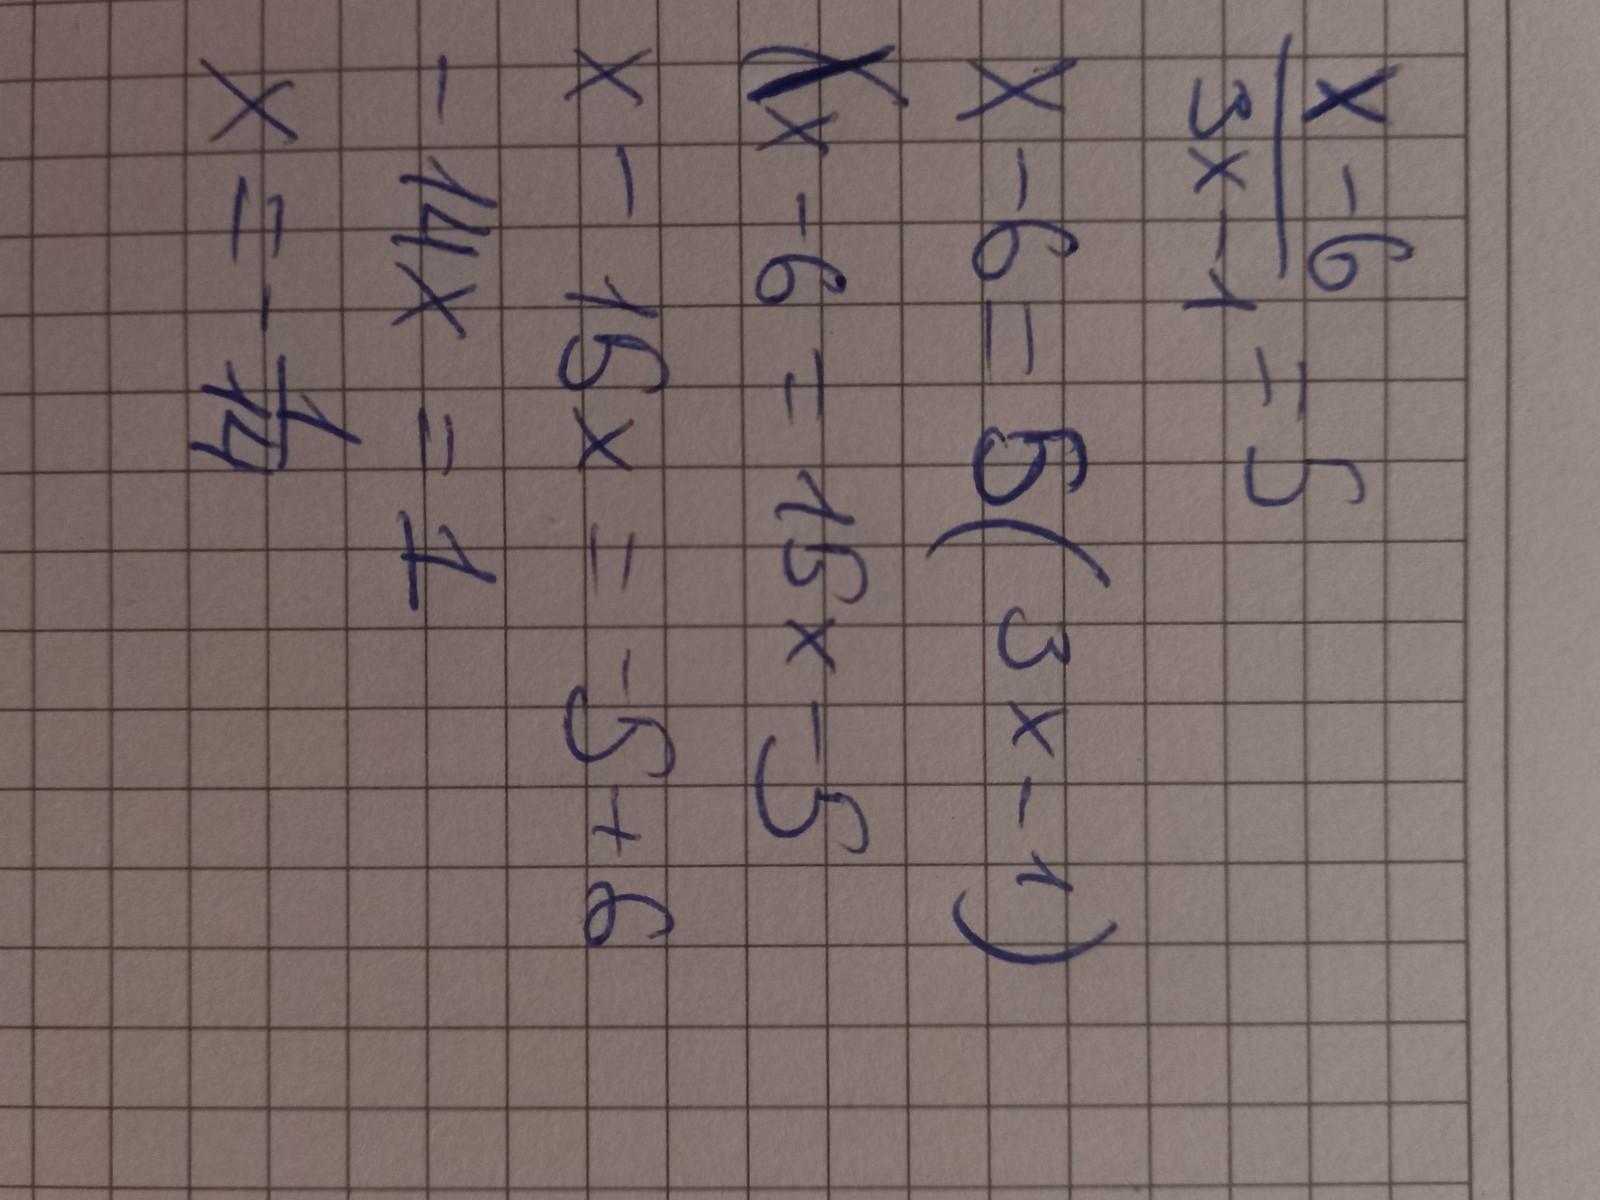 x - 6
3x - 1 = 5
x - 6 = 5(3x - 1)
x - 6 = 15x - 5
x - 15x = -5 + 6
- 14x = 1
x = - 1/14